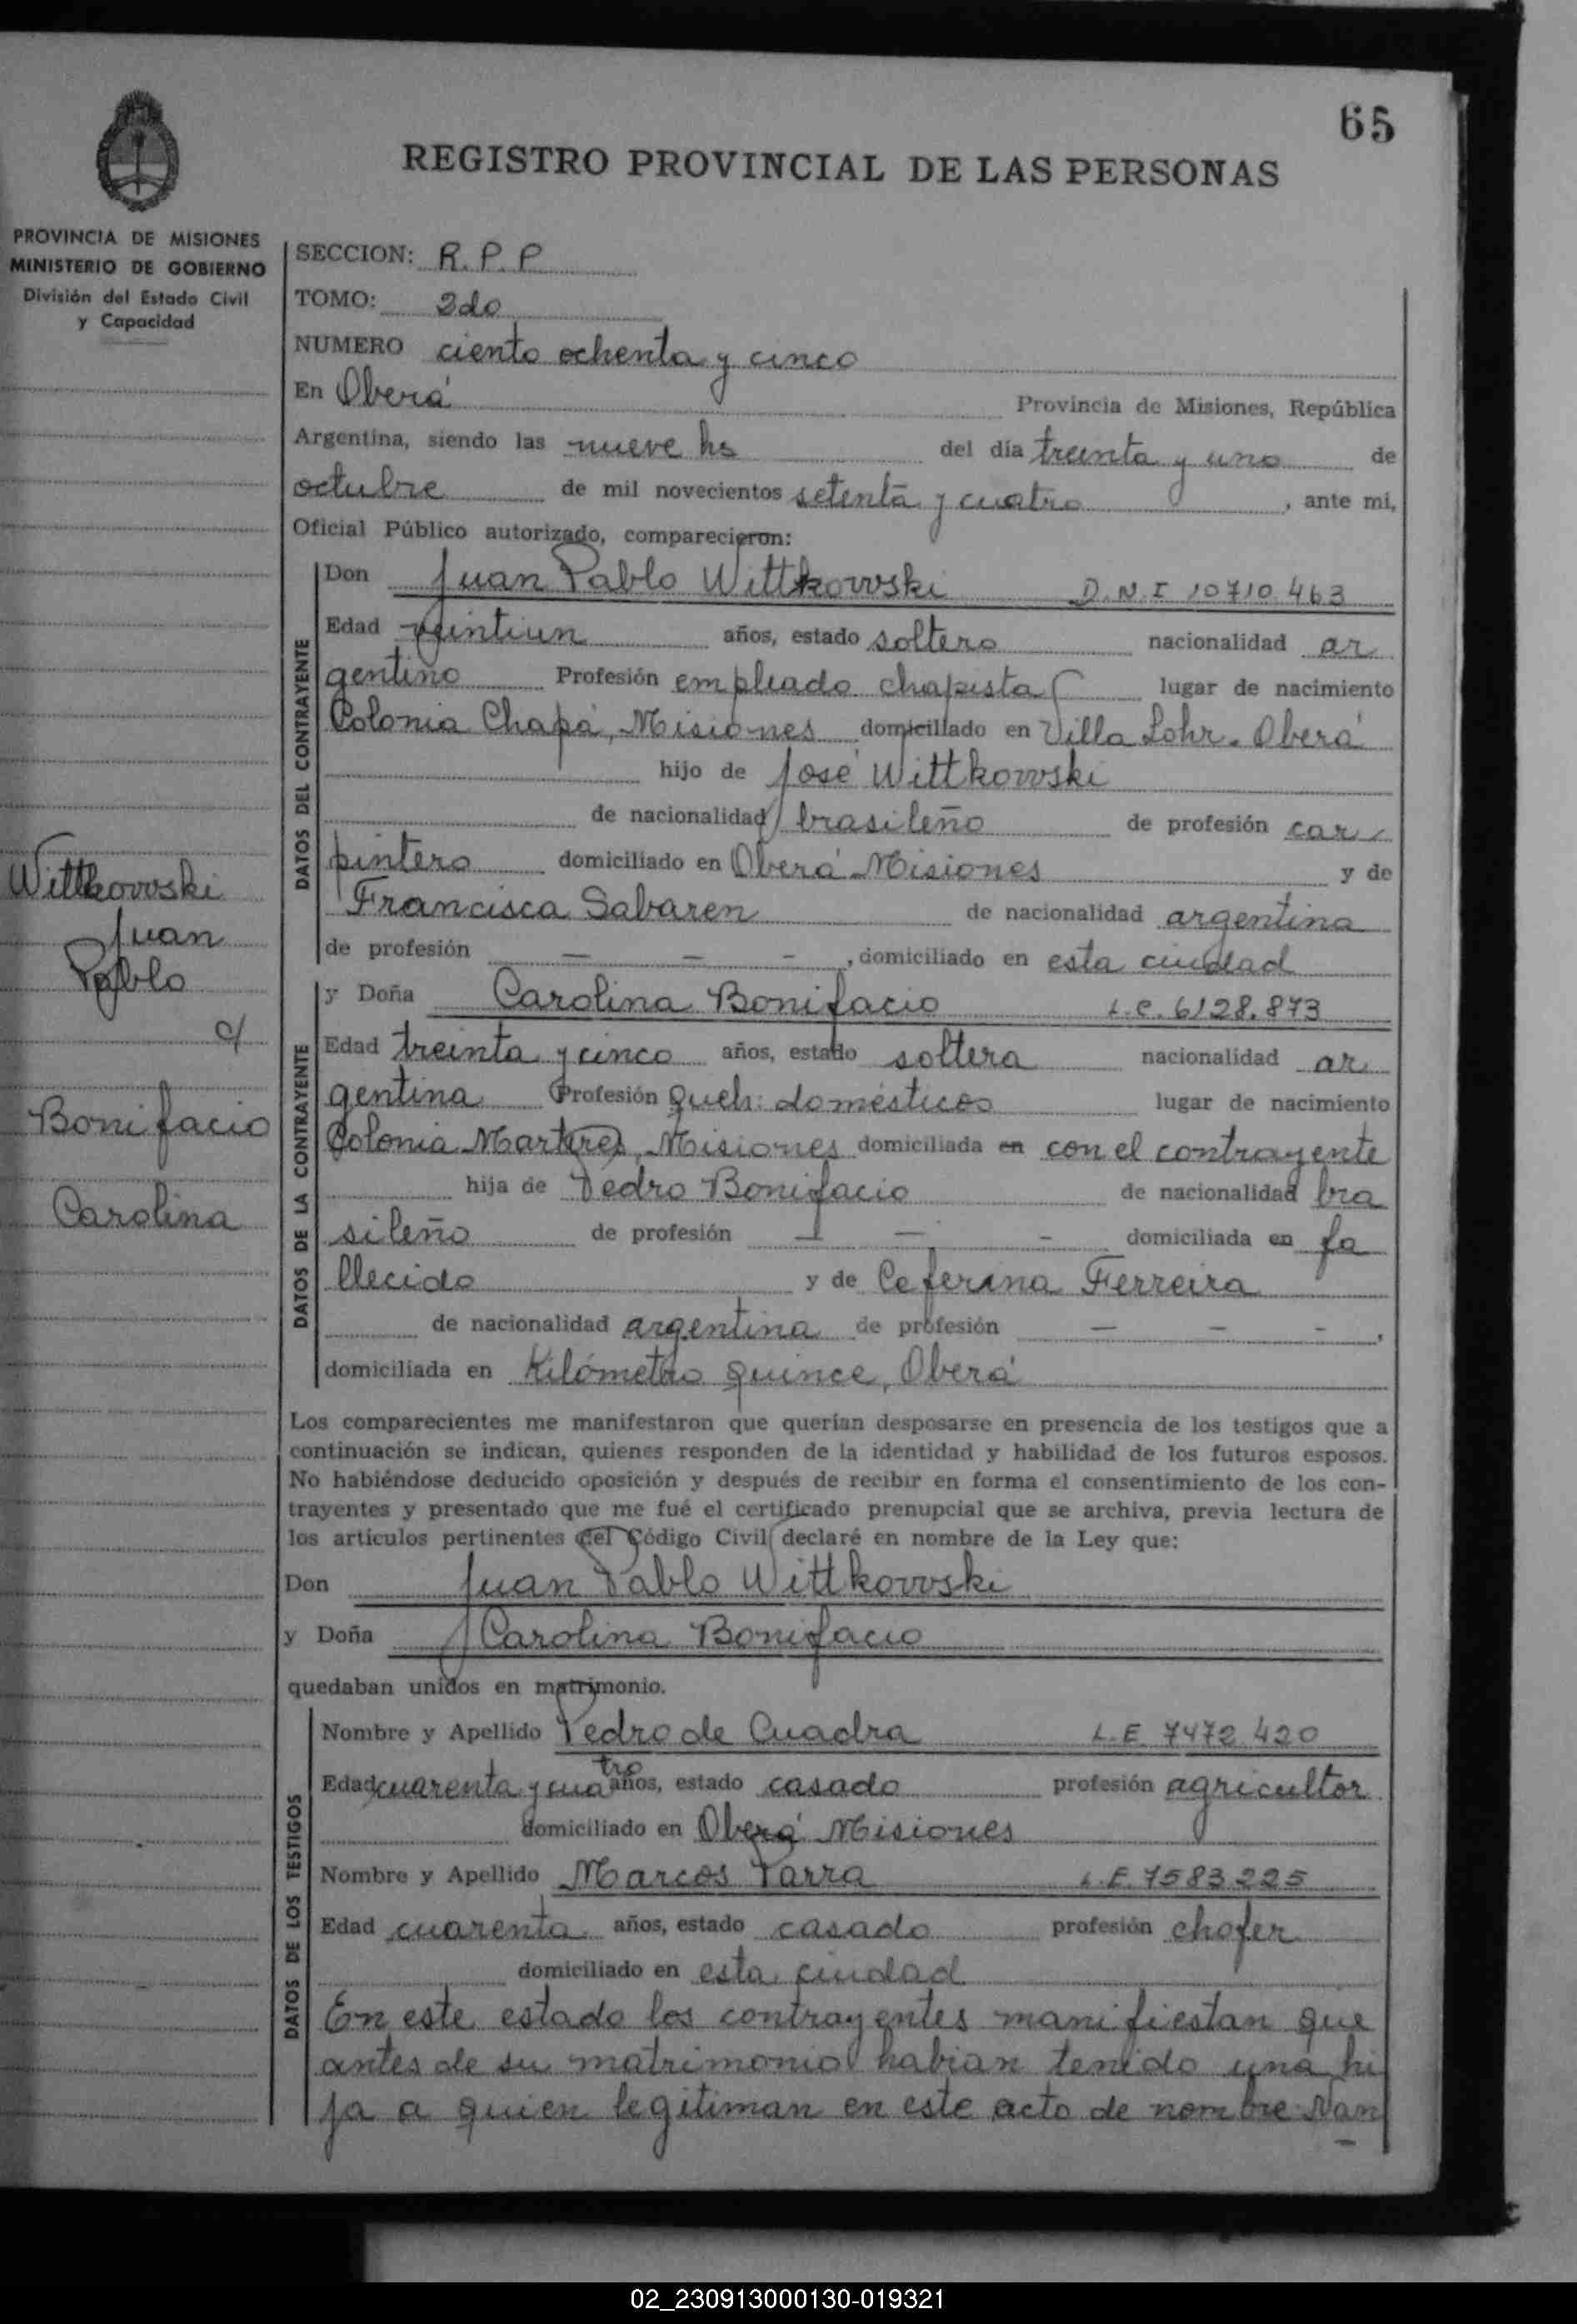 65
REGISTRO PROVINCIAL DE LAS PERSONAS
PROVINCIA DE MISIONES
MINISTERIO DE GOBIERNO
División del Estado Civil
y Capacidad
SECCION: R.P.P
TOMO: 2do
NUMERO ciento ochenta y cinco
En Oberá Provincia de Misiones, República
Argentina, siendo las nueve hs del día treinta y uno de
octubre de mil novecientos setenta y cuatro, ante mi,
Oficial Público autorizado, comparecieron:
DATOS DEL CONTRAYENTE
Don Juan Pablo Wittkowski D.N.I 10710.463
Edad veintiun años, estado soltero nacionalidad ar
gentino Profesión empleado chapista lugar de nacimiento
Colonia Chapá, Misiones domiciliado en Villa Lohr. Oberá
hijo de José Wittkowski
de nacionalidad brasileño de profesión car
pintero domiciliado en Oberá Misiones y de
Francisca Sabaren de nacionalidad argentina
de profesión — — -, domiciliado en esta ciudad
Wittkowski
Juan
Pablo
c/
Bonifacio
Carolina
DATOS DE LA CONTRAYENTE
y Doña Carolina Bonifacio L.C. 6128.873
Edad treinta y cinco años, estado soltera nacionalidad ar
gentina Profesión Queh: domésticos lugar de nacimiento
Colonia Martires, Misiones domiciliada en con el contrayente
hija de Pedro Bonifacio de nacionalidad bra
sileño de profesión — — - domiciliada en fa
llecido y de Ceferina Ferreira
de nacionalidad argentina de profesión — — -,
domiciliada en Kilómetro quince, Oberá
Los comparecientes me manifestaron que querían desposarse en presencia de los testigos que a
continuación se indican, quienes responden de la identidad y habilidad de los futuros esposos.
No habiéndose deducido oposición y después de recibir en forma el consentimiento de los con-
trayentes y presentado que me fué el certificado prenupcial que se archiva, previa lectura de
los artículos pertinentes del Código Civil declaré en nombre de la Ley que:
Don Juan Pablo Wittkowski
y Doña Carolina Bonifacio
quedaban unidos en matrimonio.
DATOS DE LOS TESTIGOS
Nombre y Apellido Pedro de Cuadra L.E 7472.420
Edad cuarenta y cuatro años, estado casado profesión agricultor
domiciliado en Oberá Misiones
Nombre y Apellido Marcos Parra L.E. 7583.225
Edad cuarenta años, estado casado profesión chofer
domiciliado en esta ciudad
En este estado los contrayentes manifiestan que
antes de su matrimonio habian tenido una hi
ja a quien legitiman en este acto de nombre Nan
02_230913000130-019321